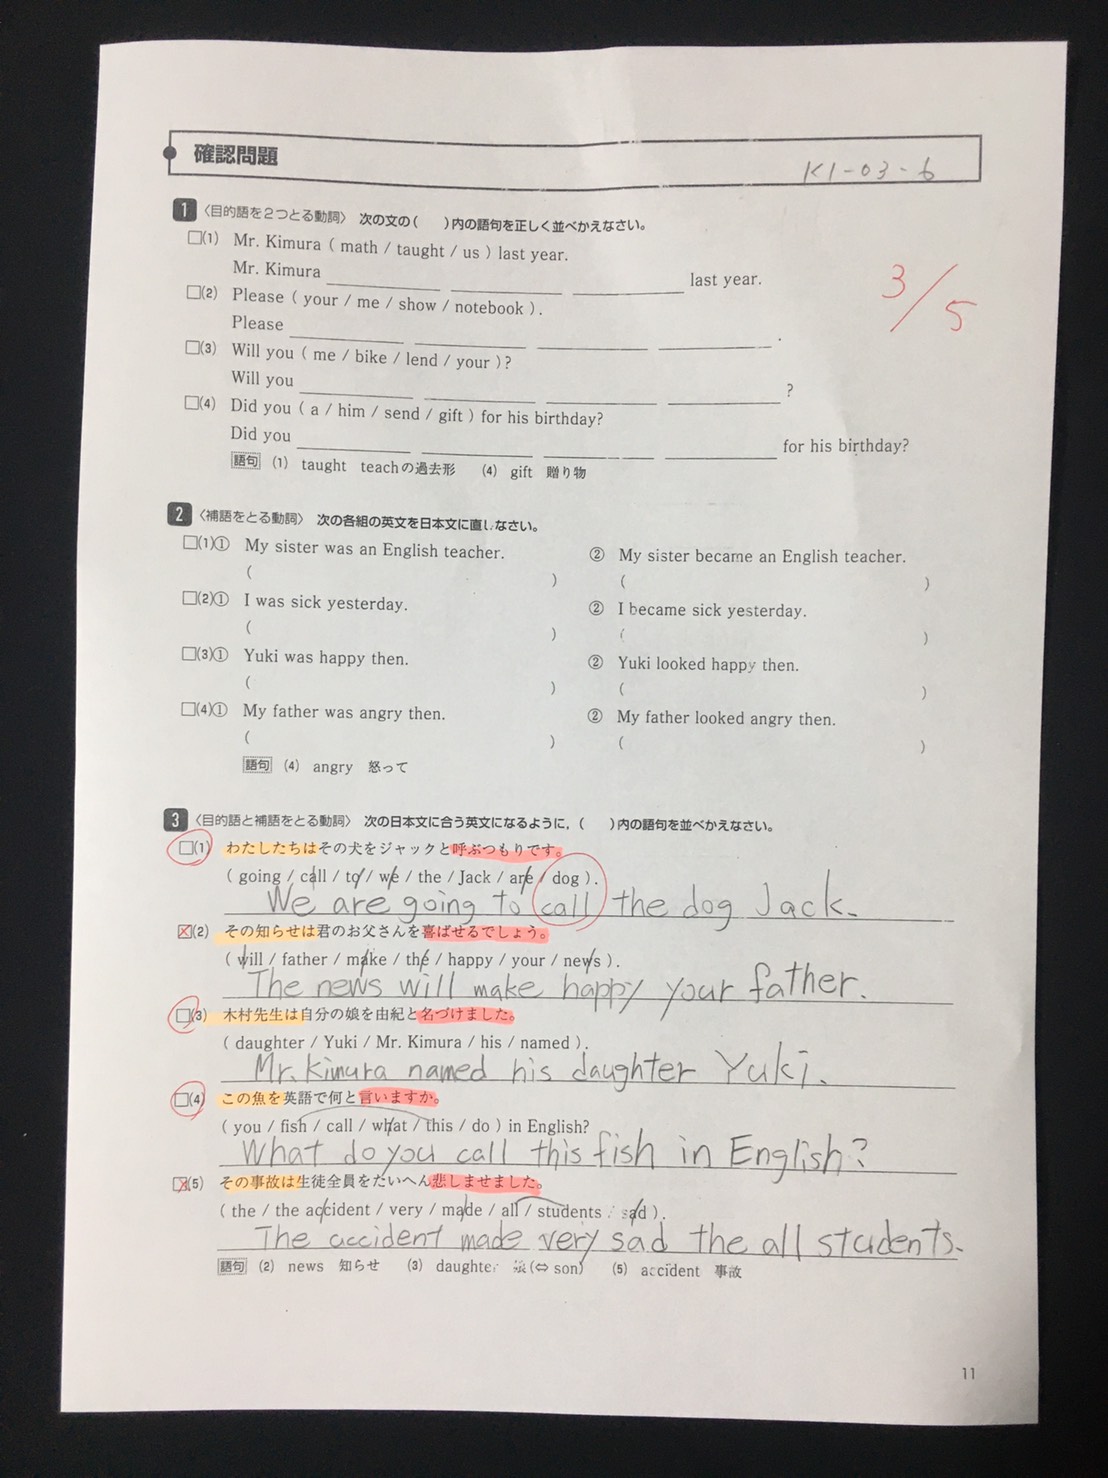 確認問題
K1-03-6
1 〈目的語を2つとる動詞〉 次の文の( )内の語句を正しく並べかえなさい。
3/5
□(1) Mr. Kimura ( math / taught / us ) last year.
Mr. Kimura ____ ____ ____ last year.
□(2) Please ( your / me / show / notebook ).
Please ____ ____ ____ ____.
□(3) Will you ( me / bike / lend / your )?
Will you ____ ____ ____ ____?
□(4) Did you ( a / him / send / gift ) for his birthday?
Did you ____ ____ ____ ____ for his birthday?
語句 (1) taught teachの過去形 (4) gift 贈り物
2 〈補語をとる動詞〉 次の各組の英文を日本文に直しなさい。
□(1)① My sister was an English teacher. ② My sister became an English teacher.
( ) ( )
□(2)① I was sick yesterday. ② I became sick yesterday.
( ) ( )
□(3)① Yuki was happy then. ② Yuki looked happy then.
( ) ( )
□(4)① My father was angry then. ② My father looked angry then.
( ) ( )
語句 (4) angry 怒って
3 〈目的語と補語をとる動詞〉 次の日本文に合う英文になるように,( )内の語句を並べかえなさい。
□(1) わたしたちはその犬をジャックと呼ぶつもりです。
( going / call / to / we / the / Jack / are / dog ).
We are going to call the dog Jack.
□(2) その知らせは君のお父さんを喜ばせるでしょう。
( will / father / make / the / happy / your / news ).
The news will make happy your father.
□(3) 木村先生は自分の娘を由紀と名づけました。
( daughter / Yuki / Mr. Kimura / his / named ).
Mr. Kimura named his daughter Yuki.
□(4) この魚を英語で何と言いますか。
( you / fish / call / what / this / do ) in English?
What do you call this fish in English?
□(5) その事故は生徒全員をたいへん悲しませました。
( the / the accident / very / made / all / students / sad ).
The accident made very sad the all students.
語句 (2) news 知らせ (3) daughter 娘(⇔ son) (5) accident 事故
11